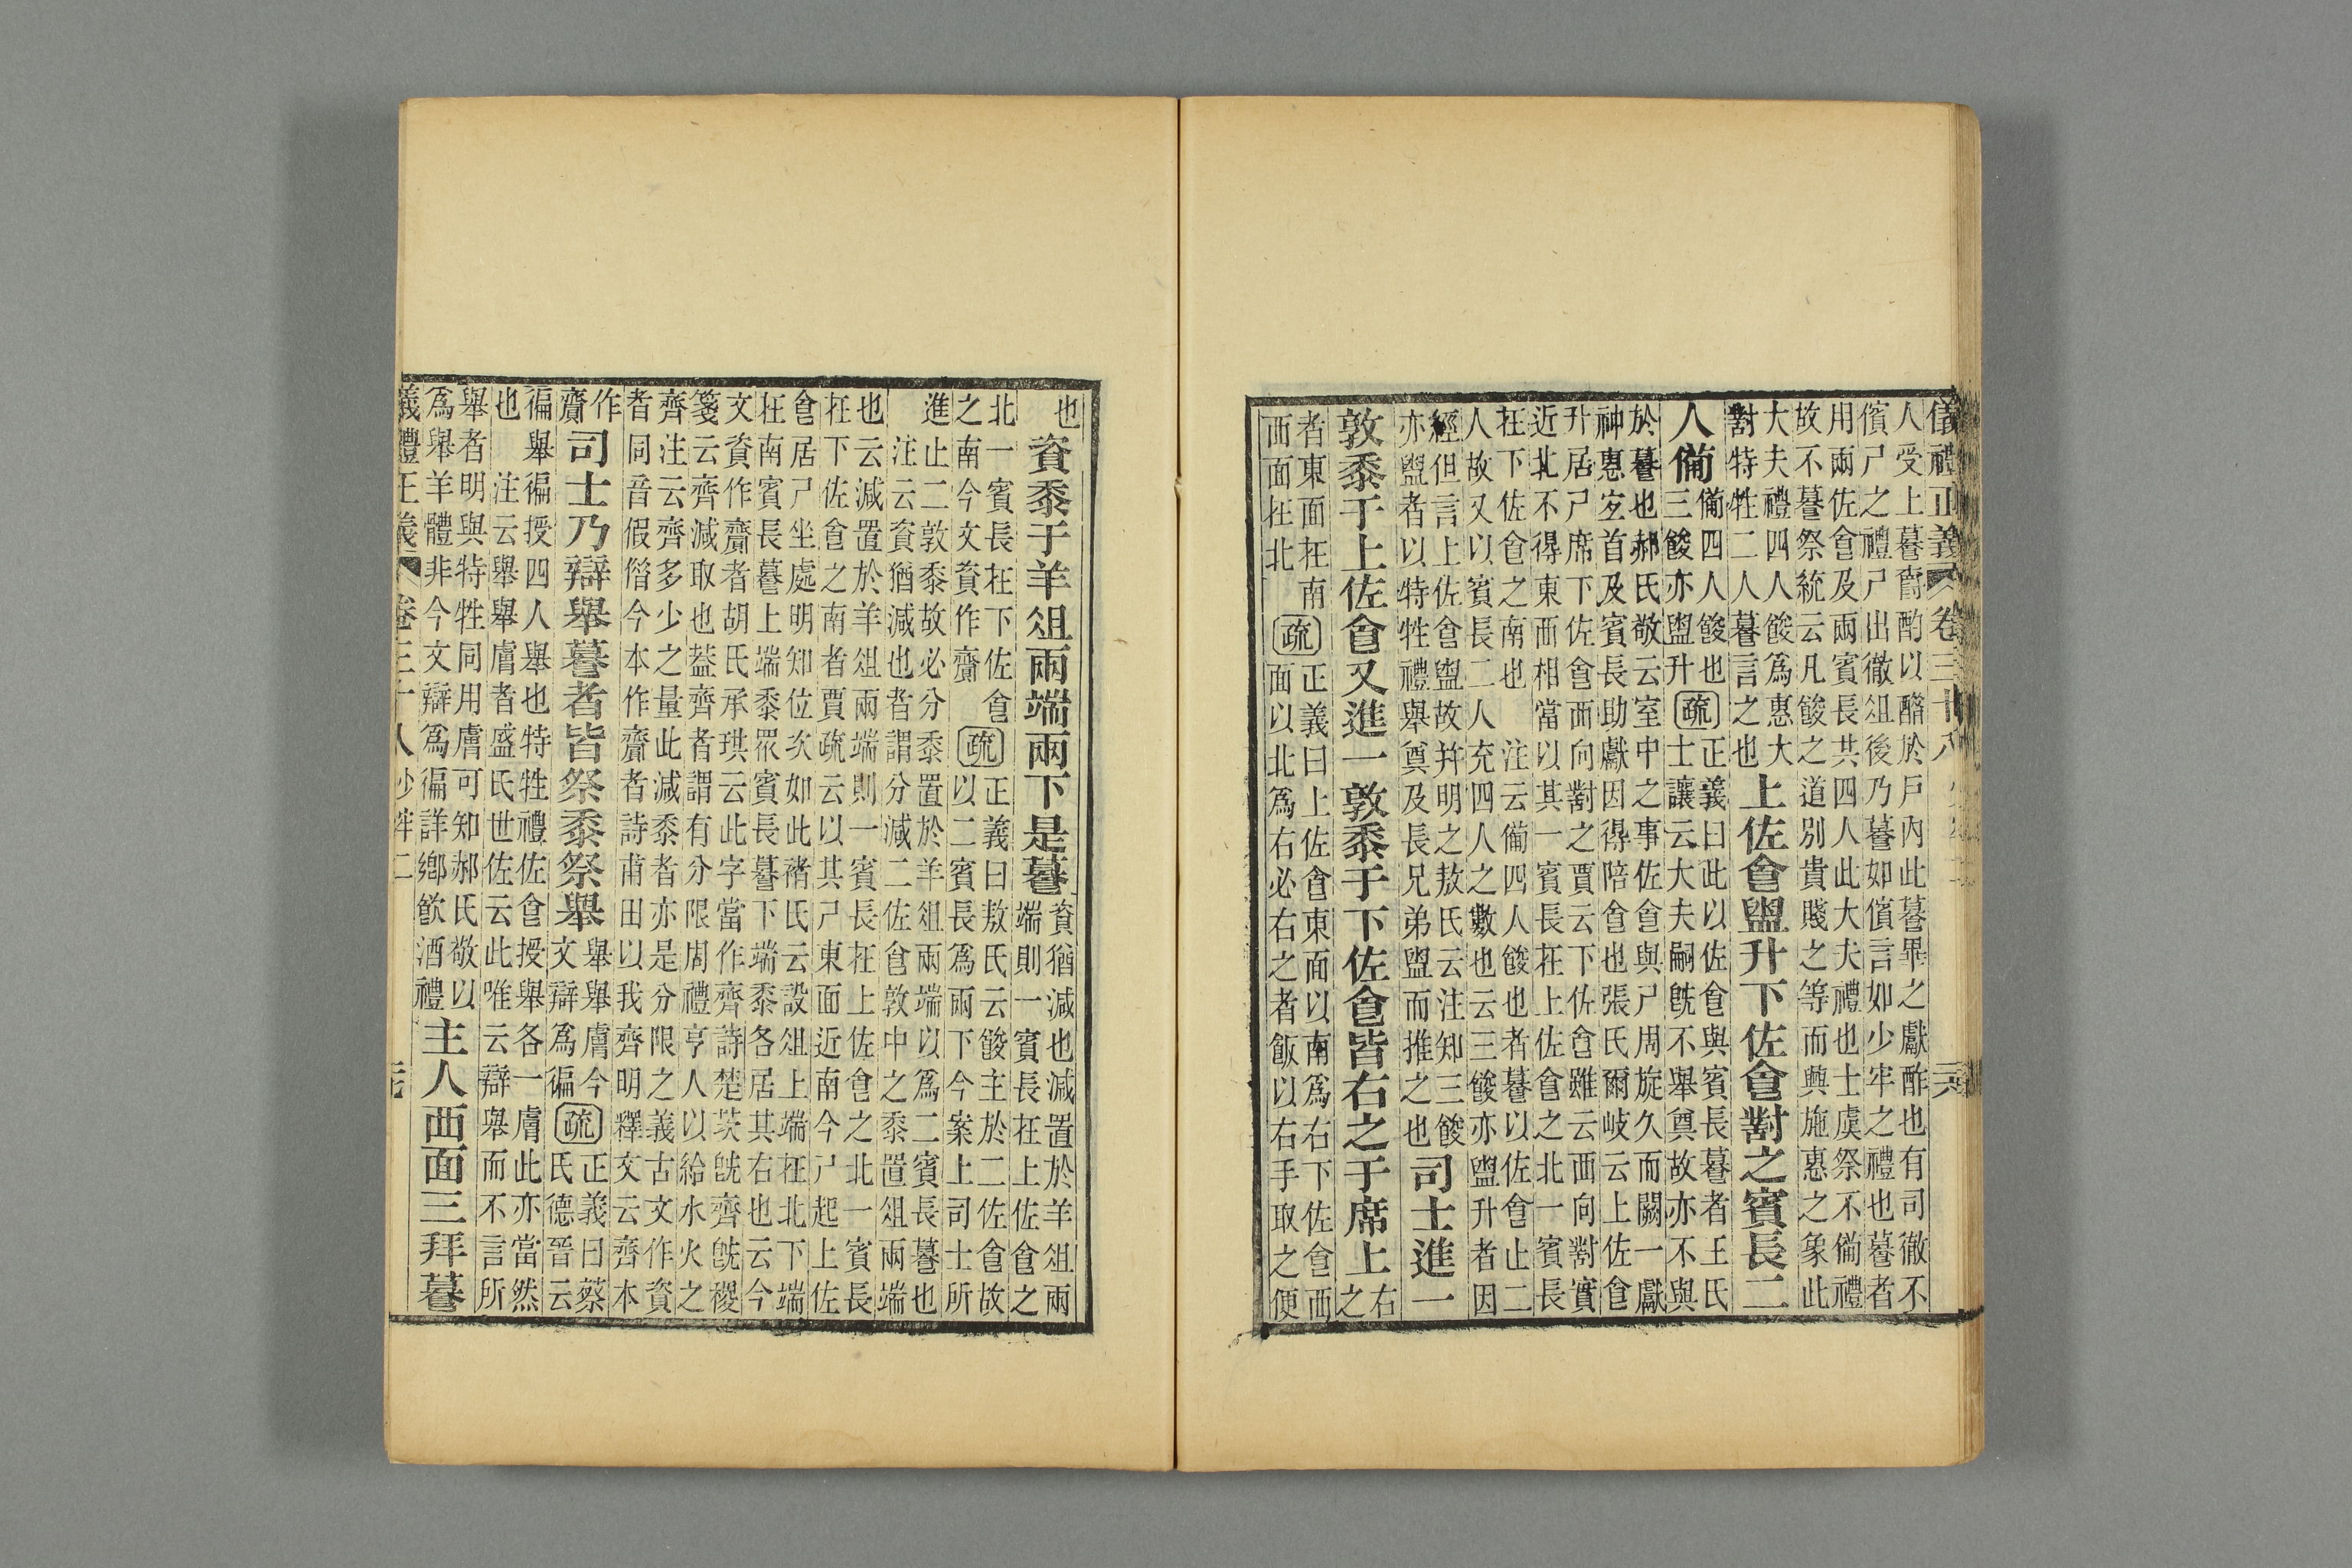 儀禮正義 卷三十八
人受上䕜爵酌以酳於戶內此䕜畢之獻酢也有司徹不
儐尸之禮尸出徹俎後乃䕜如儐言如少牢之禮也䕜者
用兩佐食及兩賓長共四人此大夫禮也士虞祭不備禮
故不䕜祭統云凡餕之道別貴賤之等而興施惠之象此
大夫禮四人餕為惠大
對特牲二人䕜言之也
上佐食盥升下佐食對之賓長二
人備
備四人餕也
三餕亦盥升
疏
正義曰此以佐食與賓長䕜者王氏
士讓云大夫嗣旣不舉奠故亦不與
於䕜也郝氏敬云室中之事佐食與尸周旋久而闕一獻
神惠宜首及賓長助獻因得陪食也張氏爾岐云上佐食
升居尸席下佐食西向對之賈云下佐食雖云西向對實
近北不得東西相當以其一賓長在上佐食之北一賓長
在下佐食之南也 注云備四人餕也者䕜以佐食止二
人故又以賓長二人充四人之數也云三餕亦盥升者因
經但言上佐食盥故幷明之敖氏云注知三餕
亦盥者以特牲禮舉奠及長兄弟盥而推之也
司士進一
敦黍于上佐食又進一敦黍于下佐食皆右之于席上
右
之
者東面在南
西面在北
疏
正義曰上佐食東面以南為右下佐食西
面以北為右必右之者飯以右手取之便
也
資黍于羊俎兩端兩下是䕜
資猶減也減置於羊俎兩
端則一賓長在上佐食之
北一賓長在下佐食
之南今文資作齎
疏
正義曰敖氏云餕主於二佐食故
以二賓長為兩下今案上司士所
進止二敦黍故必分黍置於羊俎兩端以為二賓長䕜也
注云資猶減也者謂分減二佐食敦中之黍置俎兩端
也云減置於羊俎兩端則一賓長在上佐食之北一賓長
在下佐食之南者賈疏云以其尸東面近南今尸起上佐
食居尸坐處明知位次如此褚氏云設俎上端在北下端
在南賓長䕜上端黍眾賓長䕜下端黍各居其右也云今
文資作齎者胡氏承珙云此字當作齊詩楚茨旣齊旣稷
箋云齊減取也葢齊者謂有分限周禮亨人以給水火之
齊注云齊多少之量此減黍者亦是分限之義古文作資
者同音假借今本作齎者詩甫田以我齊明釋文云齊本
作
齎
司士乃辯舉䕜者皆祭黍祭舉
舉舉膚今
文辯為徧
疏
正義曰蔡
氏德晉云
徧舉徧授四人舉也特牲禮佐食授舉各一膚此亦當然
也 注云舉舉膚者盛氏世佐云此唯云辯舉而不言所
舉者明與特牲同用膚可知郝氏敬以
為舉羊體非今文辯為徧詳鄉飲酒禮
主人西面三拜䕜